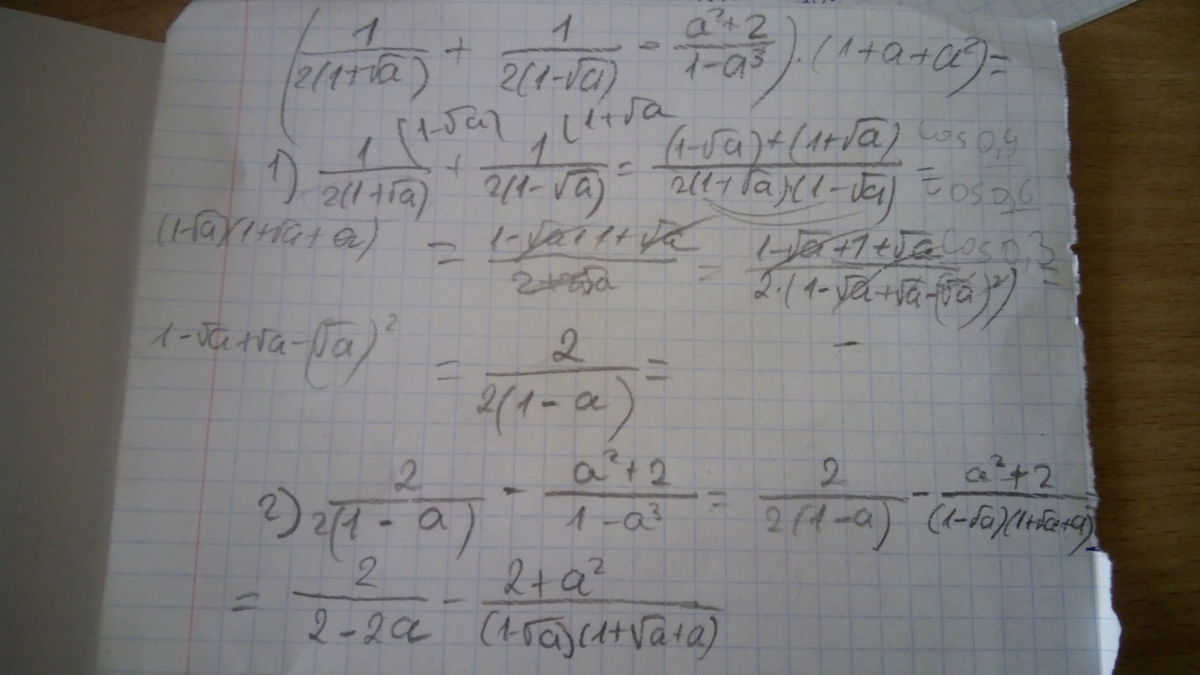 (1/(2(1+√a)) + 1/(2(1-√a)) - (a²+2)/(1-a³)) · (1+a+a²) =
(1-√a) (1+√a
1) 1/(2(1+√a)) + 1/(2(1-√a)) = ((1-√a)+(1+√a))/(2(1+√a)(1-√a)) =
cos 0,4
cos 0,6
(1-√a)(1+√a+a)
= (1-√a+1+√a)/ = (1-√a+1+√a)/(2·(1-√a+√a-(√a)²)) =
cos 0,3
1-√a+√a-(√a)²
= 2/(2(1-a)) =
-
2) 2/(2(1-a)) - (a²+2)/(1-a³) = 2/(2(1-a)) - (a²+2)/((1-√a)(1+√a+a))
= 2/(2-2a) - (2+a²)/((1-√a)(1+√a+a))